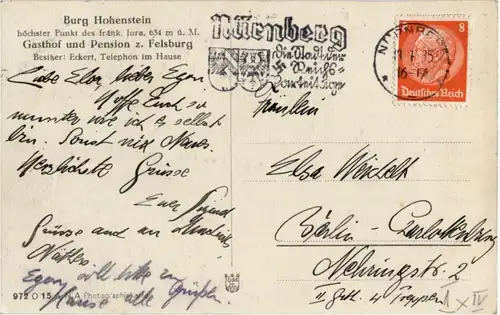 Burg Hohenstein
höchster Punkt des fränk. Jura, 634 m ü. M.
Gasthof und Pension z. Felsburg
Besitzer: Eckert, Telephon im Hause
Liebe Elsa, lieber Egon
hoffe Euch so
munter wie ich es selbst
bin. Sonst nix Neues.
Herzlichste Grüsse
Euer
Grüsse auch an
Egon soll bitte zu
Hause alle Grüßen.
972 O 15 N.A Photographie
Nürnberg
die Stadt der
Reichs-
parteitage
NÜRNBERG
16-17
8
Deutsches Reich
Fräulein
Elsa
Berlin-Charlottenburg
Nehringstr. 2
4 Treppen